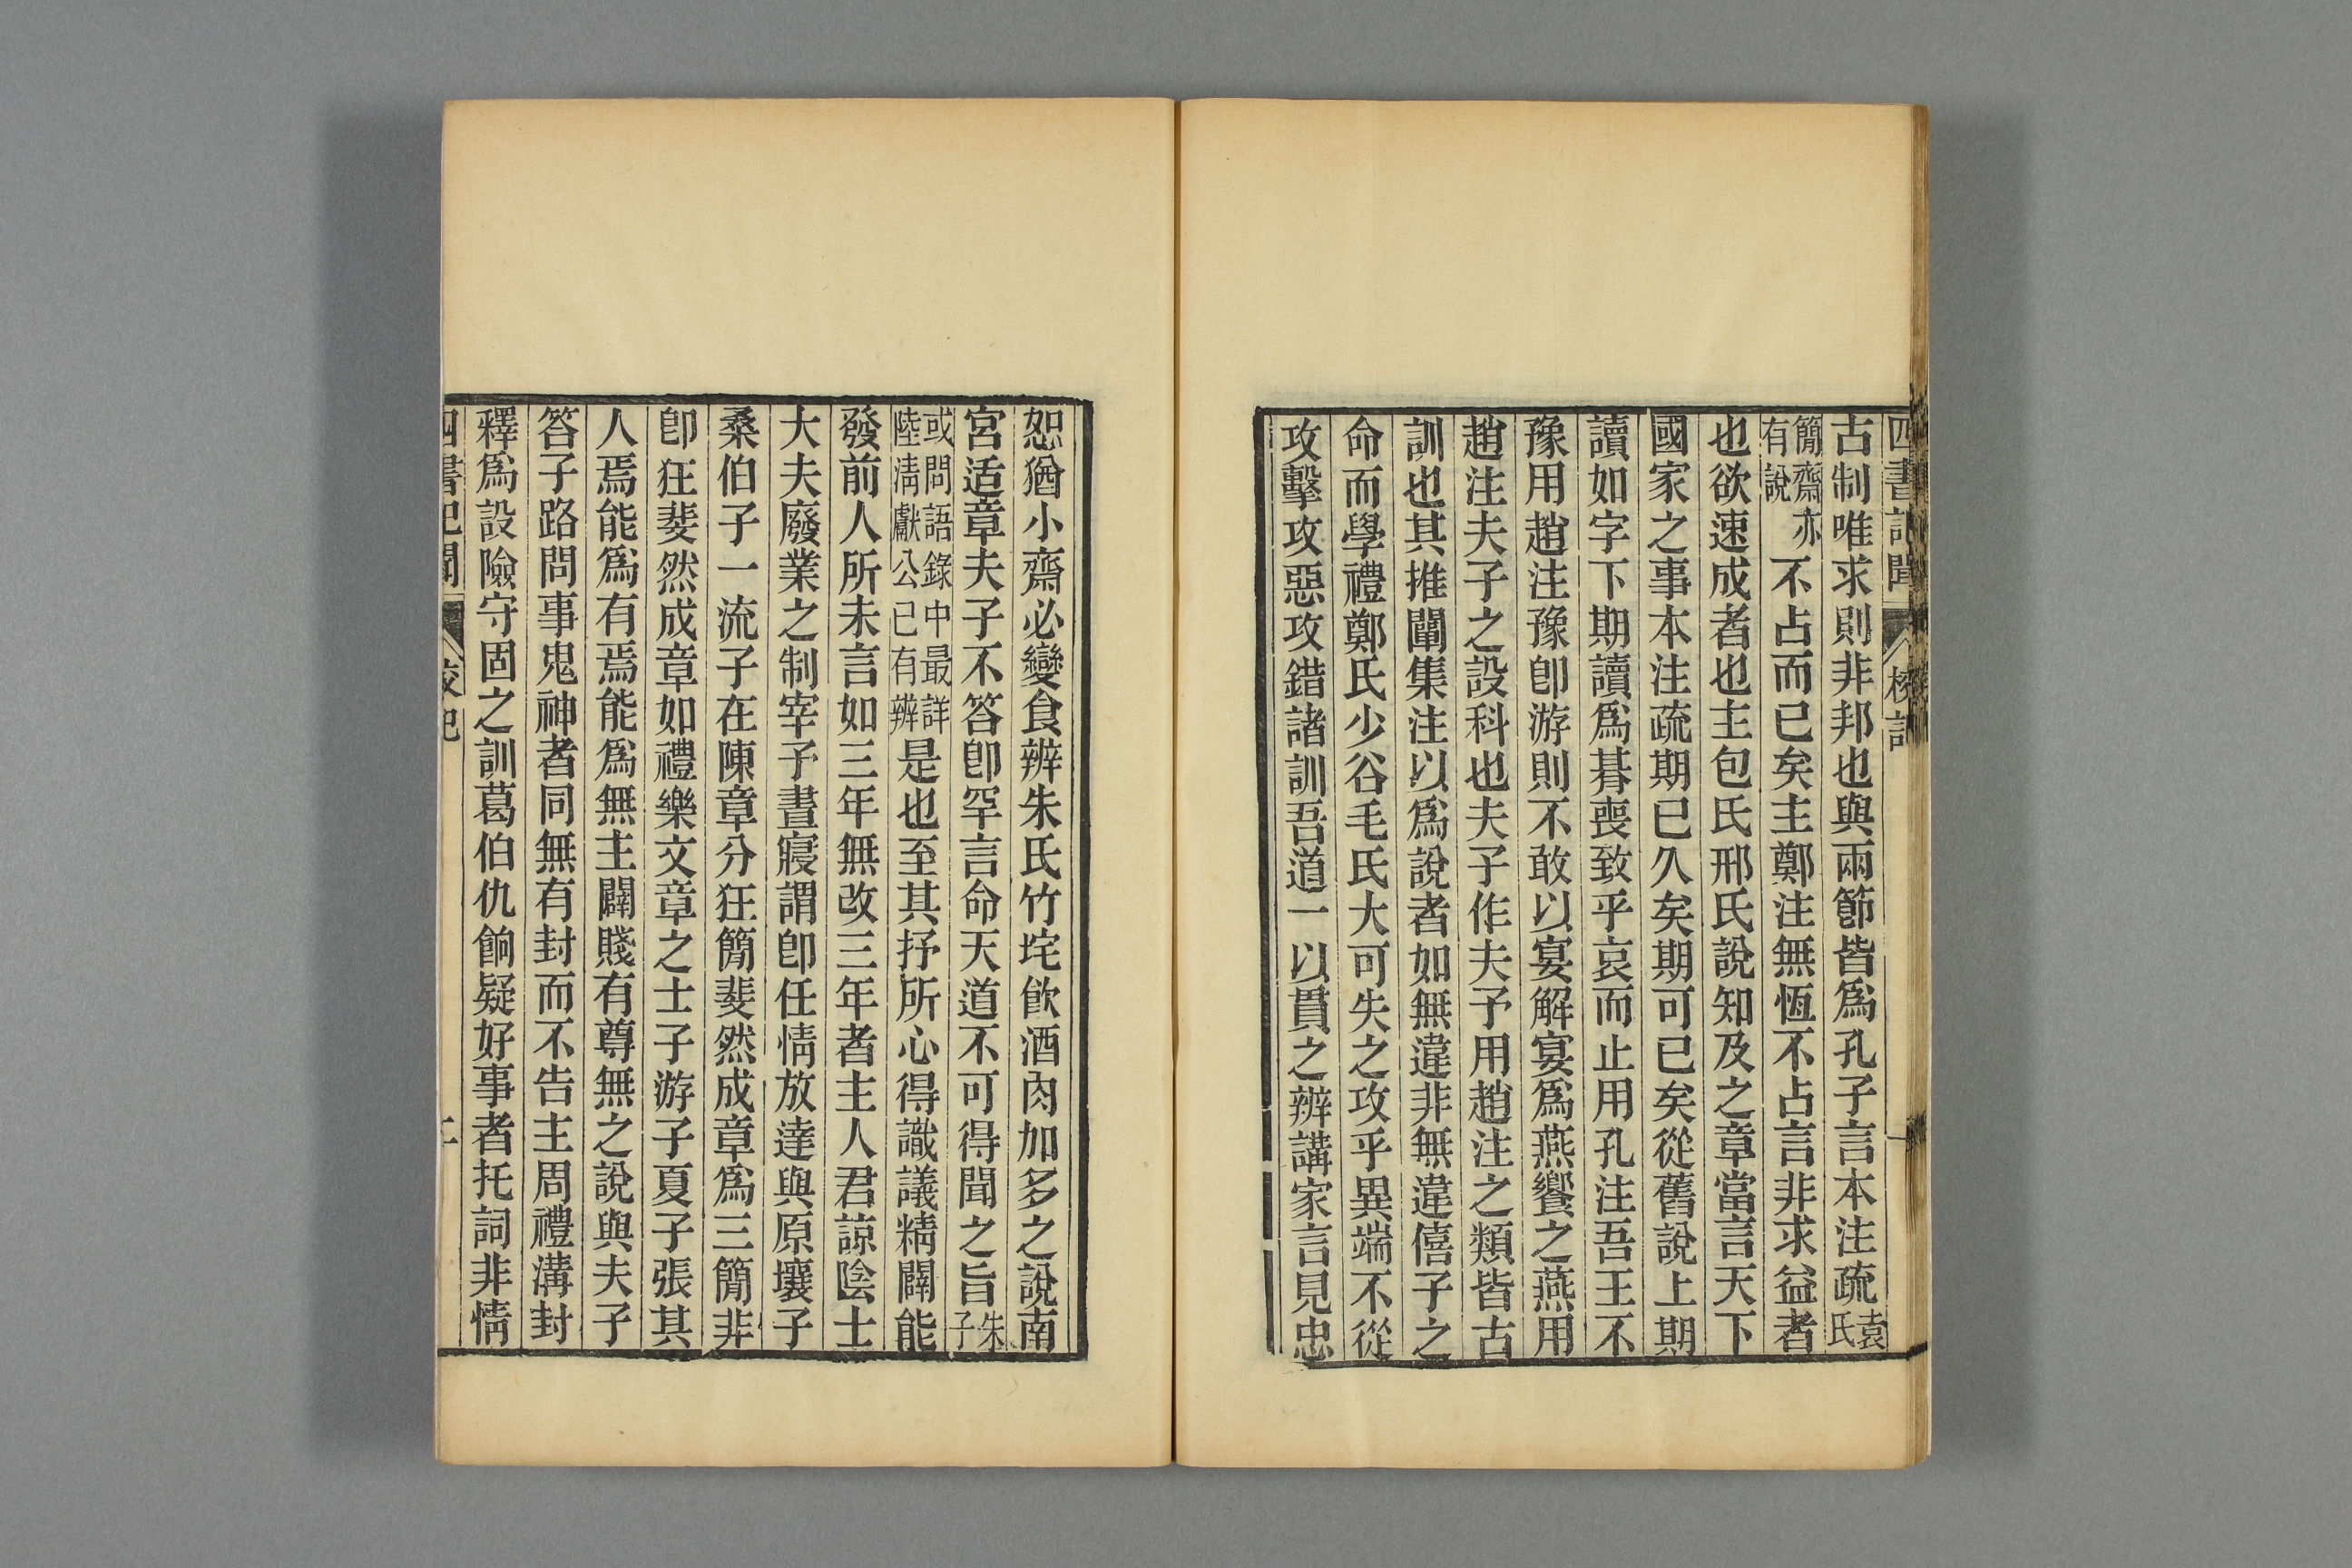 四書記聞 校記 一
古制唯求則非邦也與兩節皆爲孔子言本注疏袁氏
簡齋亦有說不占而已矣主鄭注無恆不占言非求益者
也欲速成者也主包氏邢氏說知及之章當言天下
國家之事本注疏期已久矣期可已矣從舊說上期
讀如字下期讀爲朞喪致乎哀而止用孔注吾王不
豫用趙注豫卽游則不敢以宴解宴爲燕饗之燕用
趙注夫子之設科也夫子作夫予用趙注之類皆古
訓也其推闡集注以爲說者如無違非無違僖子之
命而學禮鄭氏少谷毛氏大可失之攻乎異端不從
攻擊攻惡攻錯諸訓吾道一以貫之辨講家言見忠
恕猶小齋必變食辨朱氏竹垞飮酒肉加多之說南
宮适章夫子不答卽罕言命天道不可得聞之旨朱子
或問語錄中最詳陸淸獻公已有辨是也至其抒所心得識議精闢能
發前人所未言如三年無改三年者主人君諒陰士
大夫廢業之制宰予晝寢謂卽任情放達與原壤子
桑伯子一流子在陳章分狂簡斐然成章爲三簡非
卽狂斐然成章如禮樂文章之士子游子夏子張其
人焉能爲有焉能爲無主闢賤有尊無之說與夫子
答子路問事鬼神者同無有封而不告主周禮溝封
釋爲設險守固之訓葛伯仇餉疑好事者托詞非情
四書記聞 校記 二